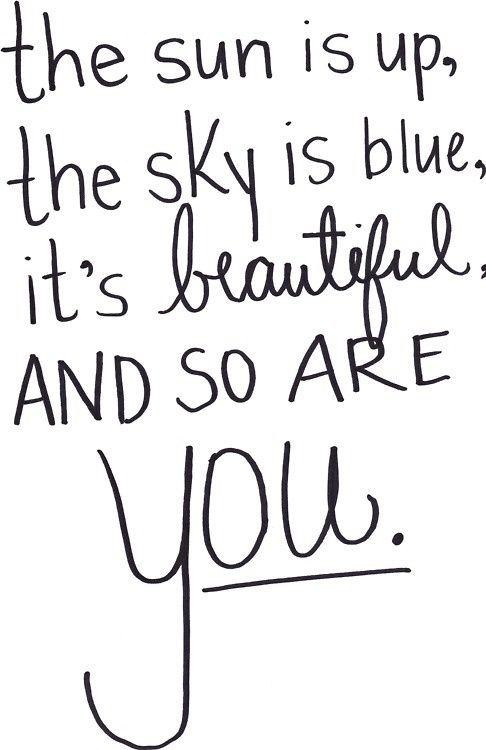 the sun is up,
the sky is blue,
it's beautiful,
AND SO ARE
you.